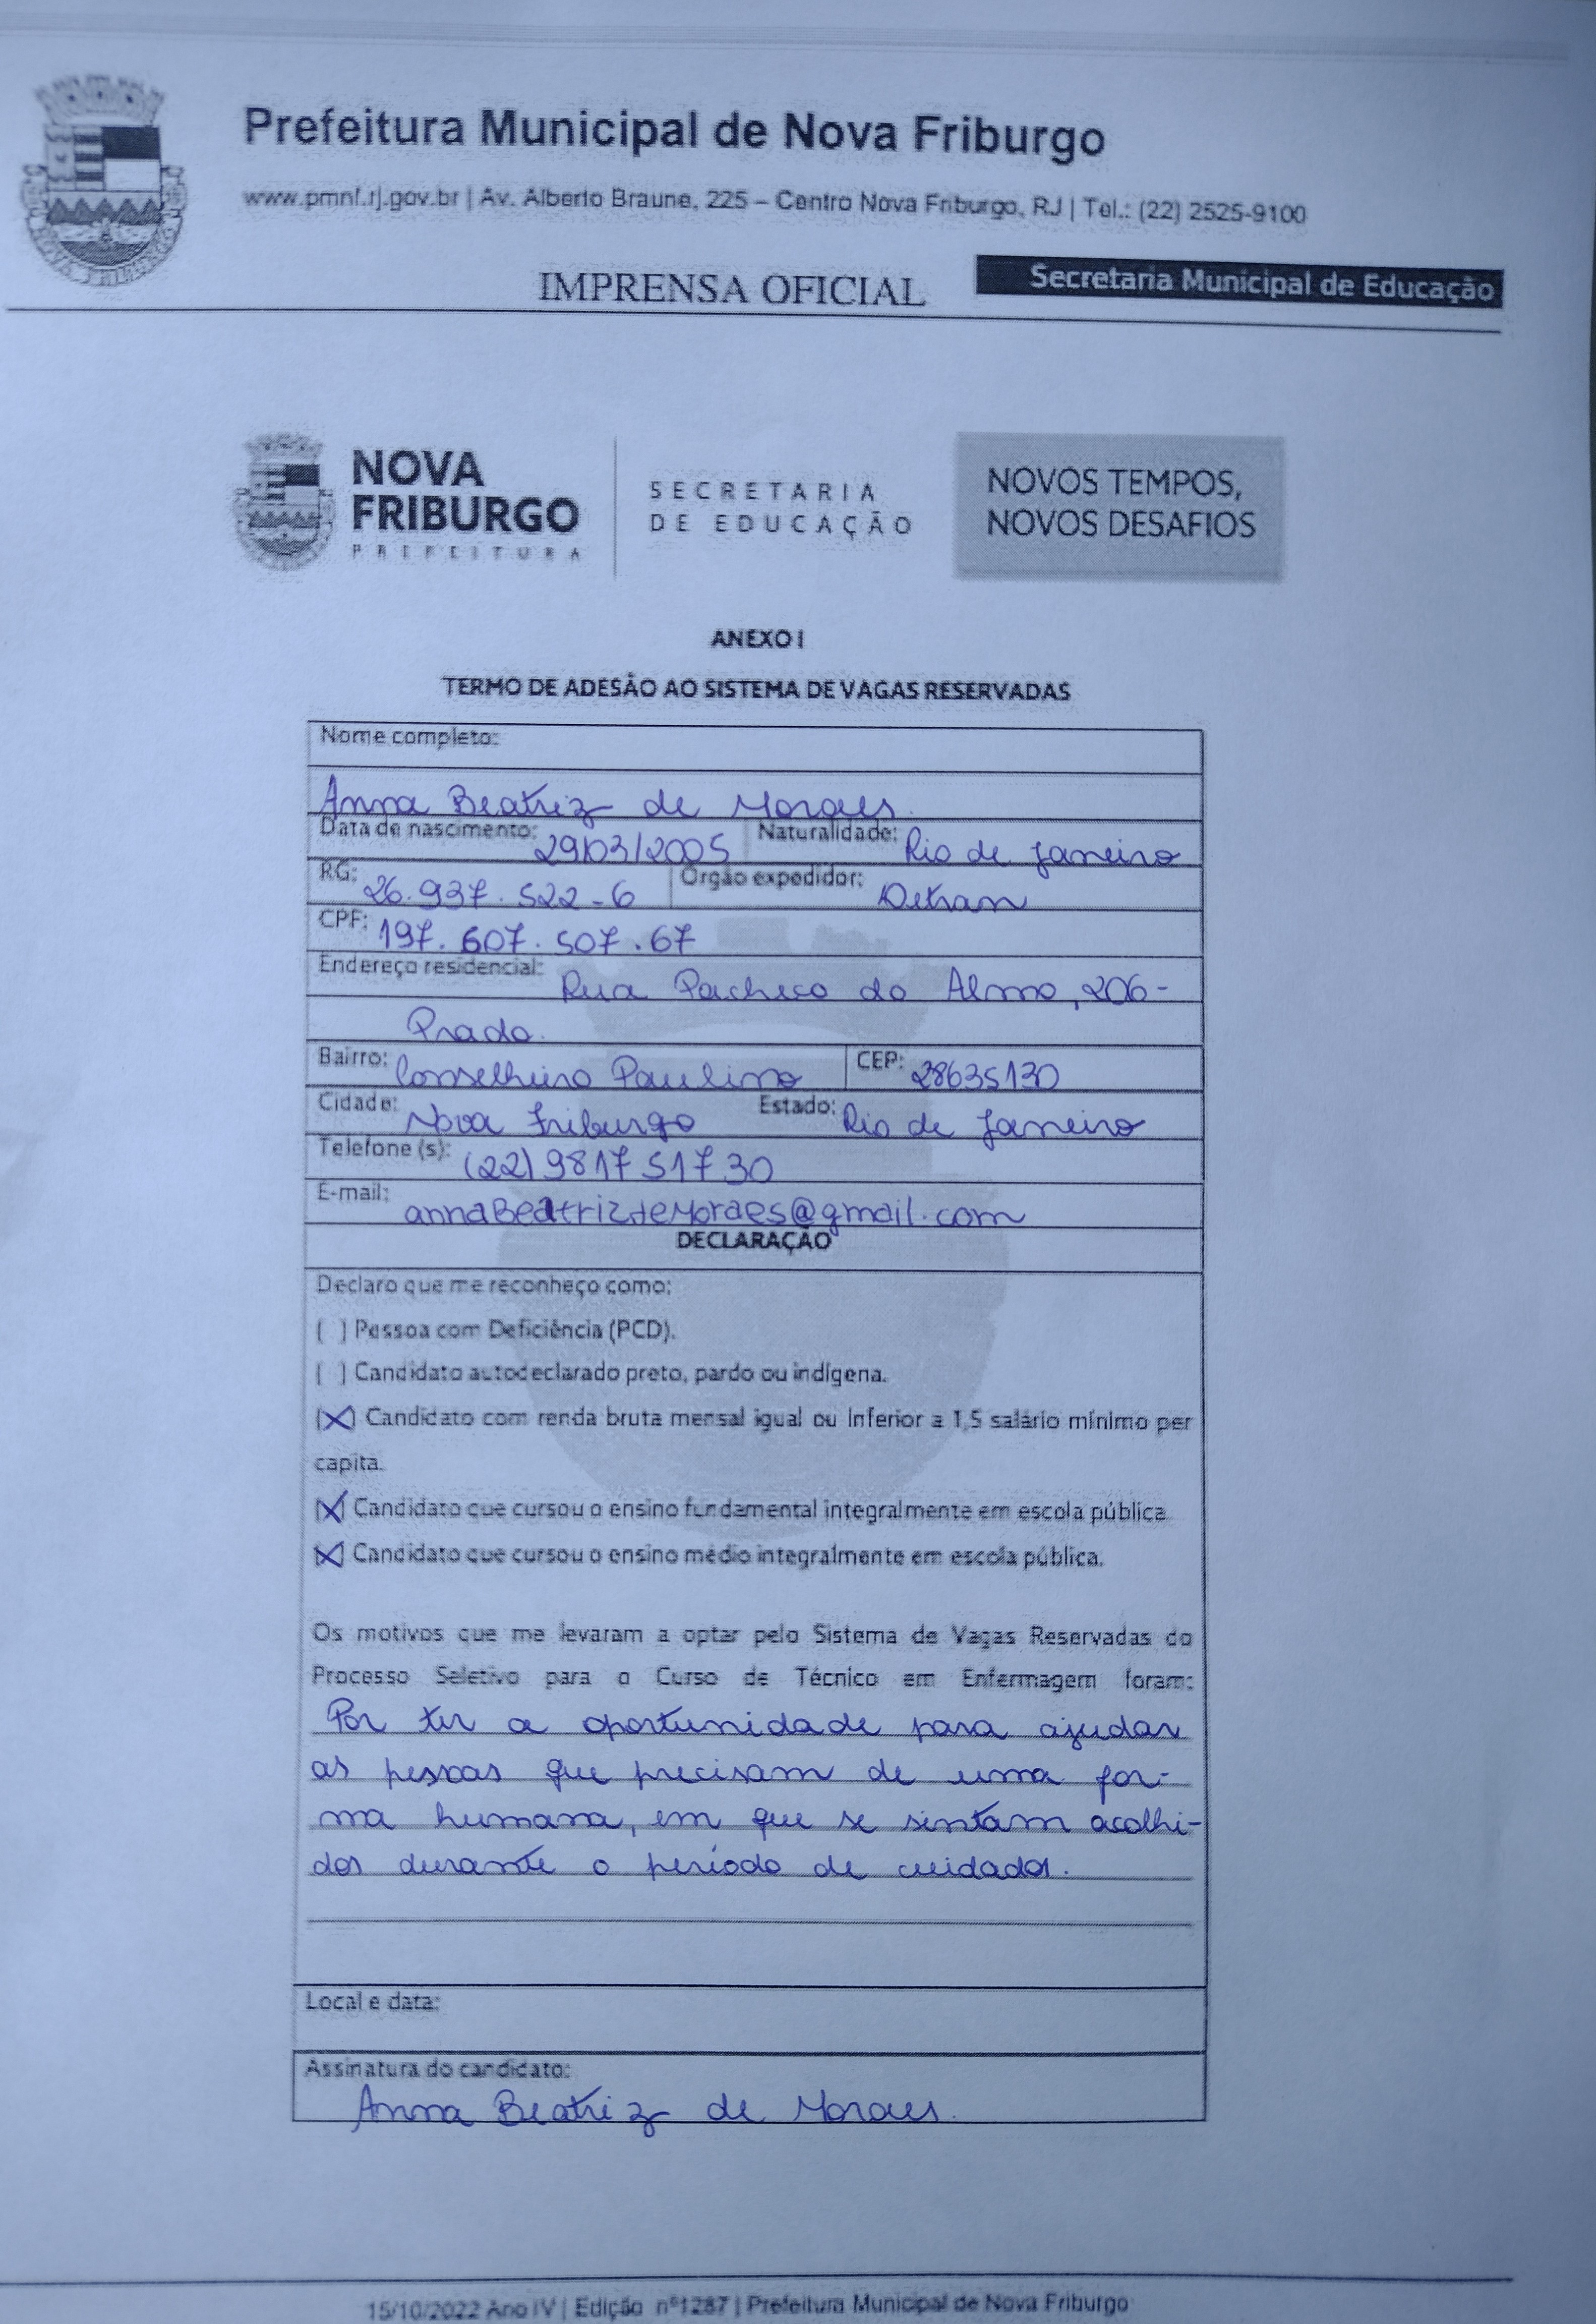 Prefeitura Municipal de Nova Friburgo
www.pmnf.rj.gov.br | Av. Alberto Braune, 225 – Centro Nova Friburgo, RJ | Tel.: (22) 2525-9100
IMPRENSA OFICIAL Secretaria Municipal de Educação
NOVA FRIBURGO
PREFEITURA
SECRETARIA
DE EDUCAÇÃO
NOVOS TEMPOS,
NOVOS DESAFIOS
ANEXO I
TERMO DE ADESÃO AO SISTEMA DE VAGAS RESERVADAS
Nome completo:
Anna Beatriz de Moraes.
Data de nascimento: 29/03/2005 Naturalidade: Rio de Janeiro
RG: 26.937.522-6 Orgão expedidor: Detran
CPF: 197.607.507.67
Endereço residencial: Rua Pacheco do Almo, 206-
Prado.
Bairro: Conselheiro Paulino CEP: 28635130
Cidade: Nova Friburgo Estado: Rio de Janeiro
Telefone (s): (22) 981751730
E-mail: annaBeatrizdeMoraes@gmail.com
DECLARAÇÃO
Declaro que me reconheço como:
( ) Pessoa com Deficiência (PCD).
( ) Candidato autodeclarado preto, pardo ou indígena.
(X) Candidato com renda bruta mensal igual ou inferior a 1,5 salário mínimo per
capita.
(X) Candidato que cursou o ensino fundamental integralmente em escola pública.
(X) Candidato que cursou o ensino médio integralmente em escola pública.
Os motivos que me levaram a optar pelo Sistema de Vagas Reservadas do
Processo Seletivo para o Curso de Técnico em Enfermagem foram:
Por ter a oportunidade para ajudar
as pessoas que precisam de uma for-
ma humana, em que se sintam acolhi-
dos durante o período de cuidados.
Local e data:
Assinatura do candidato:
Anna Beatriz de Moraes.
15/10/2022 Ano IV | Edição nº1287 | Prefeitura Municipal de Nova Friburgo